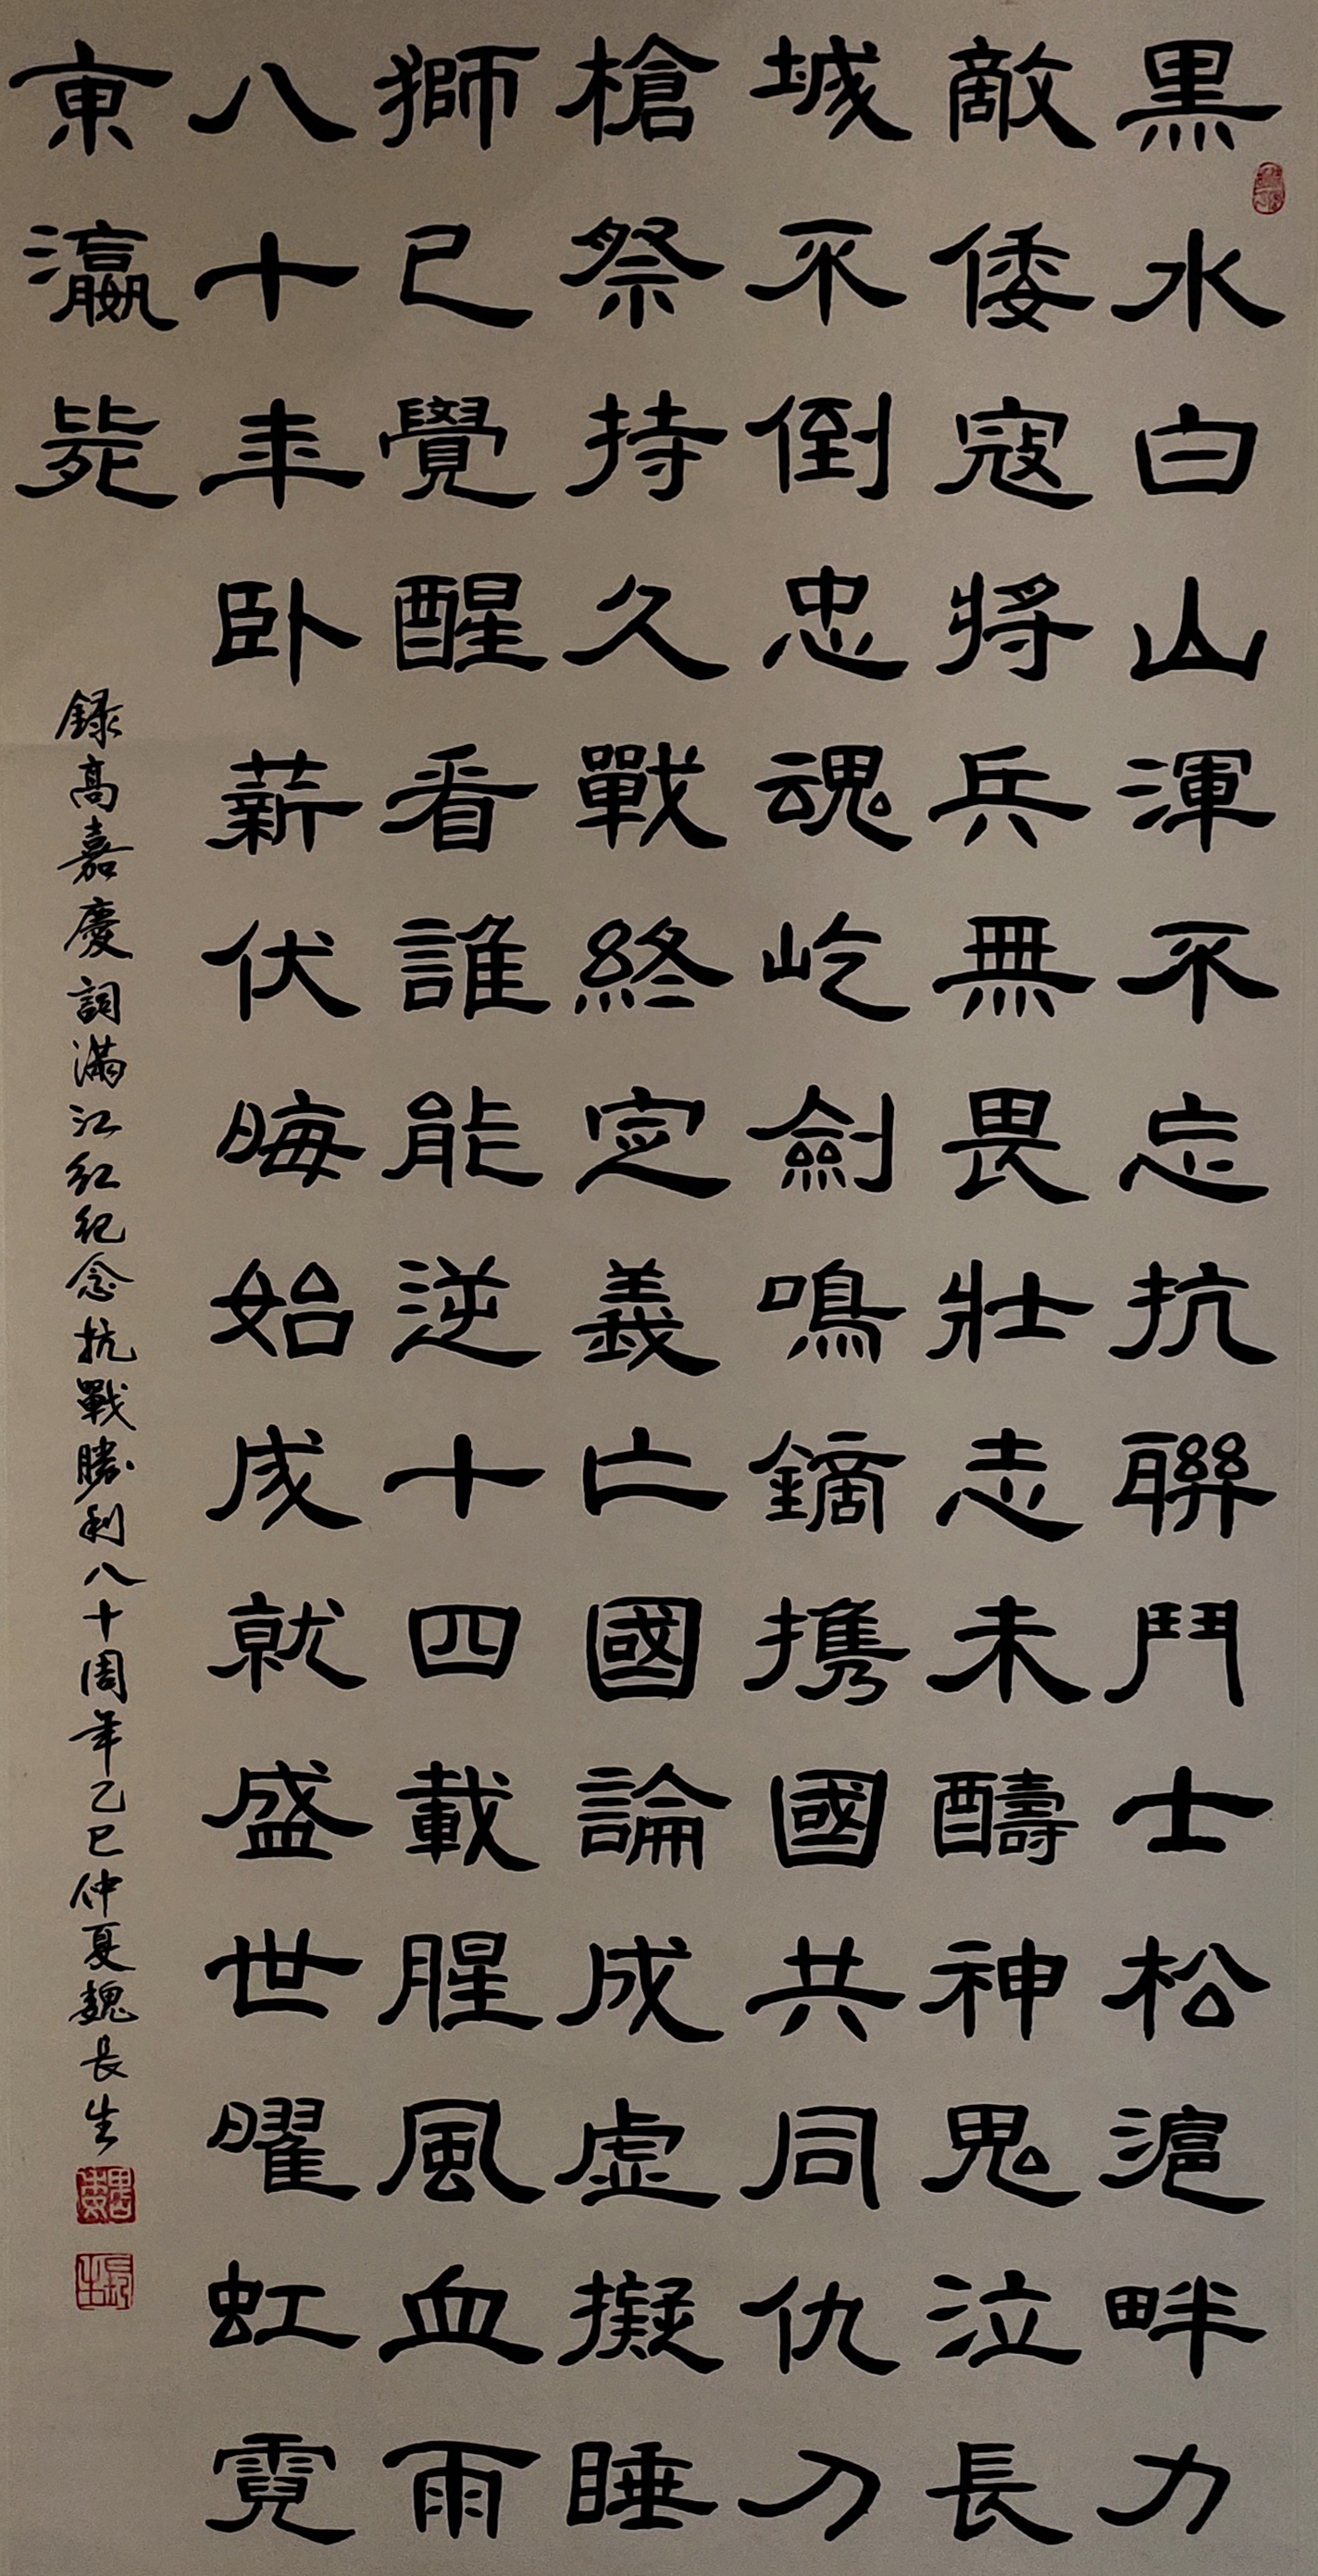 黑水白山渾不忘抗聯鬥士松滬畔力
敵倭寇將兵無畏壯志未醻神鬼泣長
城不倒忠魂屹劍鳴鏑携國共同仇刀
槍祭持久戰終定義亡國論成虛擬睡
獅已覺醒看誰能逆十四載腥風血雨
八十年卧薪伏晦始成就盛世曜虹霓
東瀛毙
録高嘉慶詞滿江紅紀念抗戰勝利八十周年乙巳仲夏魏長生